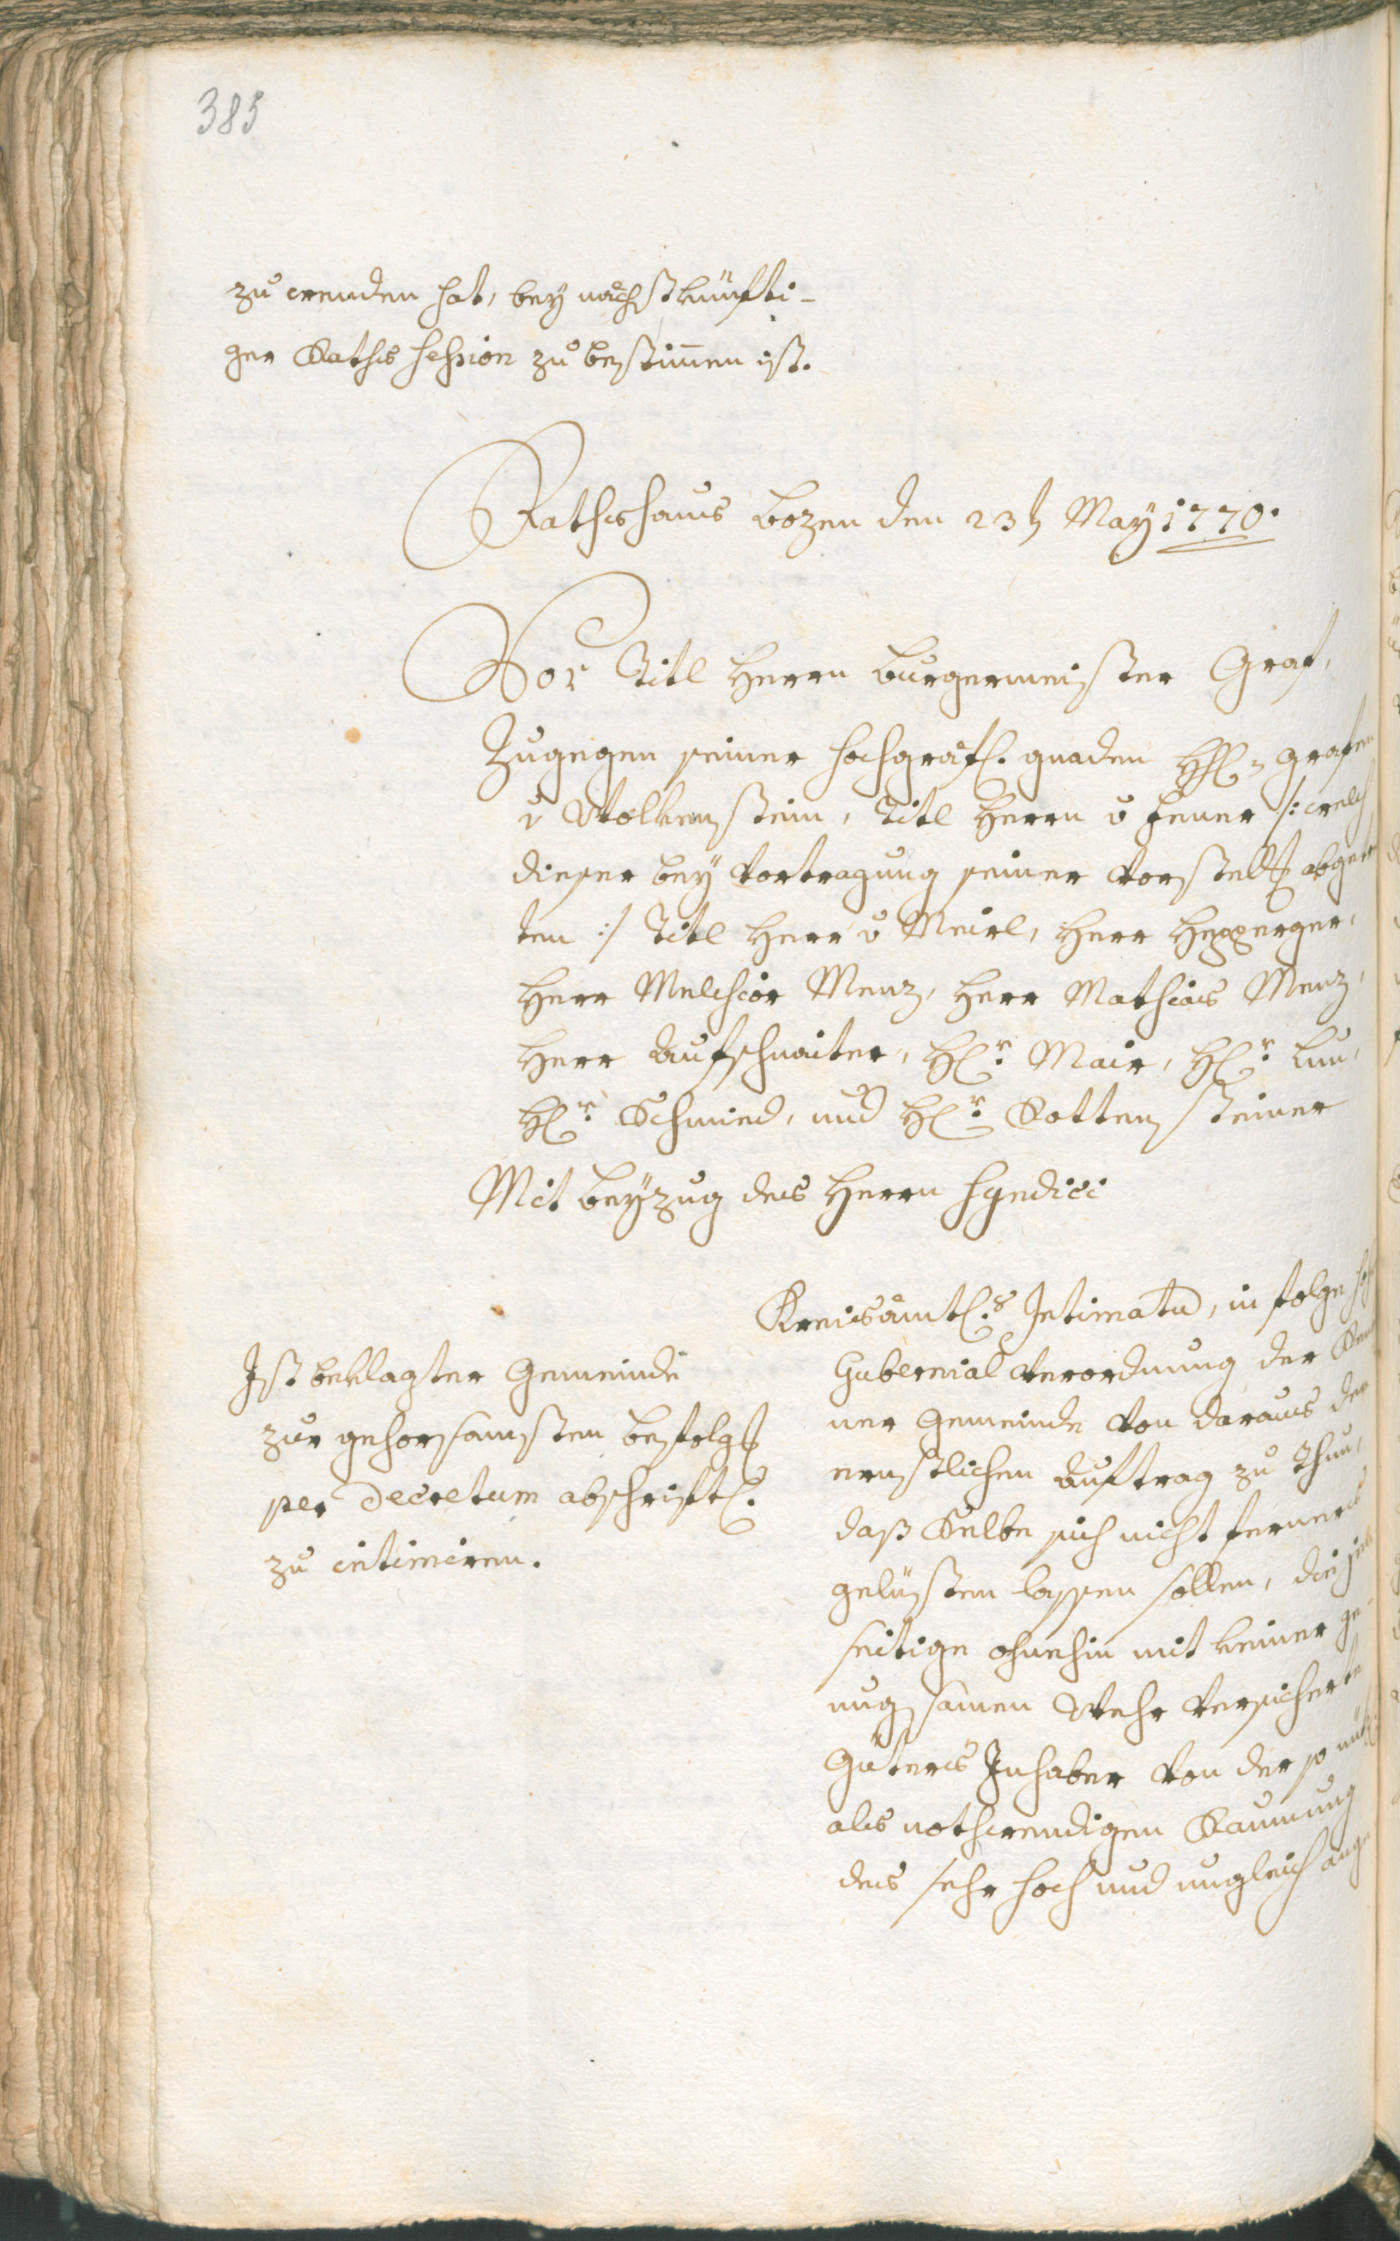 385
zu wenden hat, bey nächstkünfti-
ger Raths Session zu bestimmen ist.
Rathshaus Bozen den 23t May 1770.
Vor Titl Herrn Burgermeister Graf,
Zugegen seiner hochgräfl. gnaden H: Grafen
v Wolkenstein, Titl Herrn v Fener /: welch
dieser bey Vortragung seiner Vorstellg abget
ten :/ Titl Herr v Meirl, Herr Hepperger,
Herr Melchior Menz, Herr Mathias Menz,
Herr Aufschnaiter, Hr. Mair, Hr.
Hr. Schmied, und Hr. Rottensteiner
Mit beyzug des Herrn Syndici
Ist beklagter Gemeinde
zur gehorsamsten befolgg
per Decretum abschriftl.
zu intimiren.
Kreisämtl.s Intimatu, in folge
Gubernial Verordnung der
ner Gemeinde von daraus den
ernstlichen Auftrag zu thun,
daß Selbe sich nicht ferners
gelüsten lassen sollen, die
seitige ohnehin mit keiner ge-
nugsamen Wehr versicherte
Güters Inhaber von der so
als nothwendigen Raumung
des sehr hoch und ungleich ange